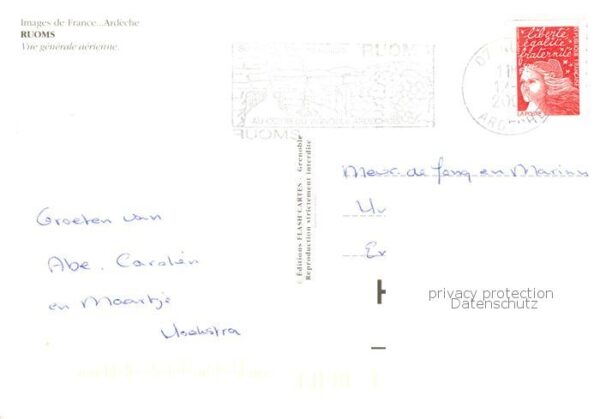 Images de France...Ardèche
RUOMS
Vue générale aérienne.
RUOMS
RUOMS
liberté
égalité
fraternité
RÉPUBLIQUE FRANÇAISE
LA POSTE
© Éditions FLASH'CARTES - Grenoble
Reproduction strictement interdite
Groeten van
Abe, Carolien
en Maartje
Hoekstra
Mevr. de Jong en Marinus
privacy protection
Datenschutz